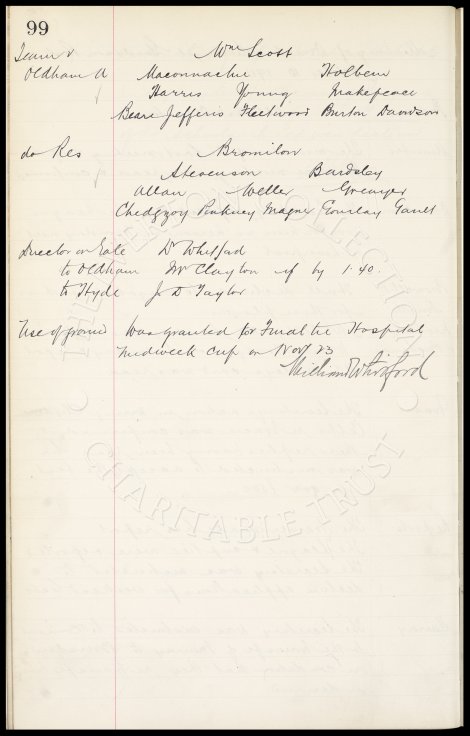 99
Team v Wm Scott
Oldham A Maconnachie Holbem
Harris Young Makepeace
Beare Jefferis Fleetwood Burton Davidson
do Res Bromilow
Stevenson Bardsley
Allan Weller Grenyer
Chedgzoy Pinkney Magner Gourlay Gault
Director on Gate Dr Whitford
to Oldham Mr Clayton if by 1.40.
to Hyde Jn D Taylor
Use of ground Was granted for Final tie Hospital
Midweek Cup on Nov 23
William Whitford
THE EVERTON COLLECTION
CHARITABLE TRUST